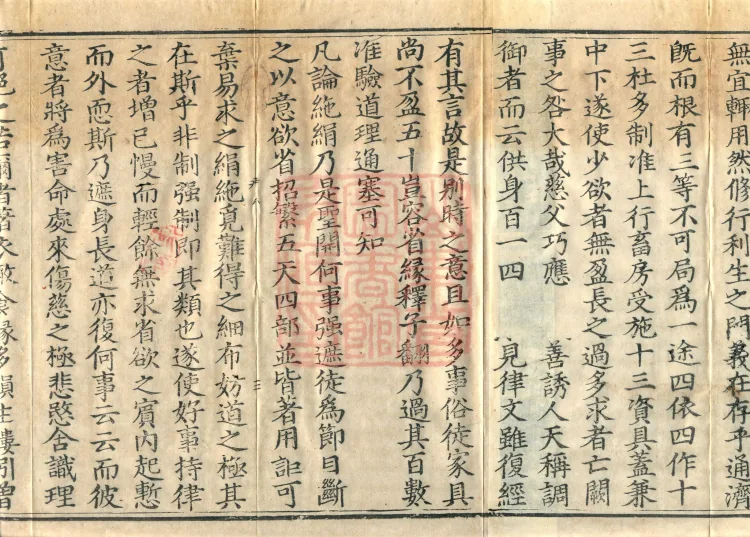 無宜輒用然修行利生之門義在存乎通濟
既而根有三等不可局爲一途四依四作十
三杜多制准上行畜房受施十三資具蓋兼
中下遂使少欲者無盈長之過多求者亡闕
事之咎大哉慈父巧應 善誘人天稱調
御者而云供身百一四 見律文雖復經
有其言故是別時之意且如多事俗徒家具
尚不盈五十豈容省緣釋子翻乃過其百數
准驗道理通塞可知
凡論絁絹乃是聖開何事强遮徒爲節目斷
之以意欲省招繁五天四部並皆著用詎可
棄易求之絹絁覓難得之細布妨道之極其
在斯乎非制强制即其類也遂使好事持律
之者增己慢而輕餘無求省欲之賓內起慙
而外恧斯乃遮身長道亦復何事云云而彼
意者將爲害命處來傷慈之極悲愍含識理
可絕之若爾者著衣噉食緣多損生螻蚓曾